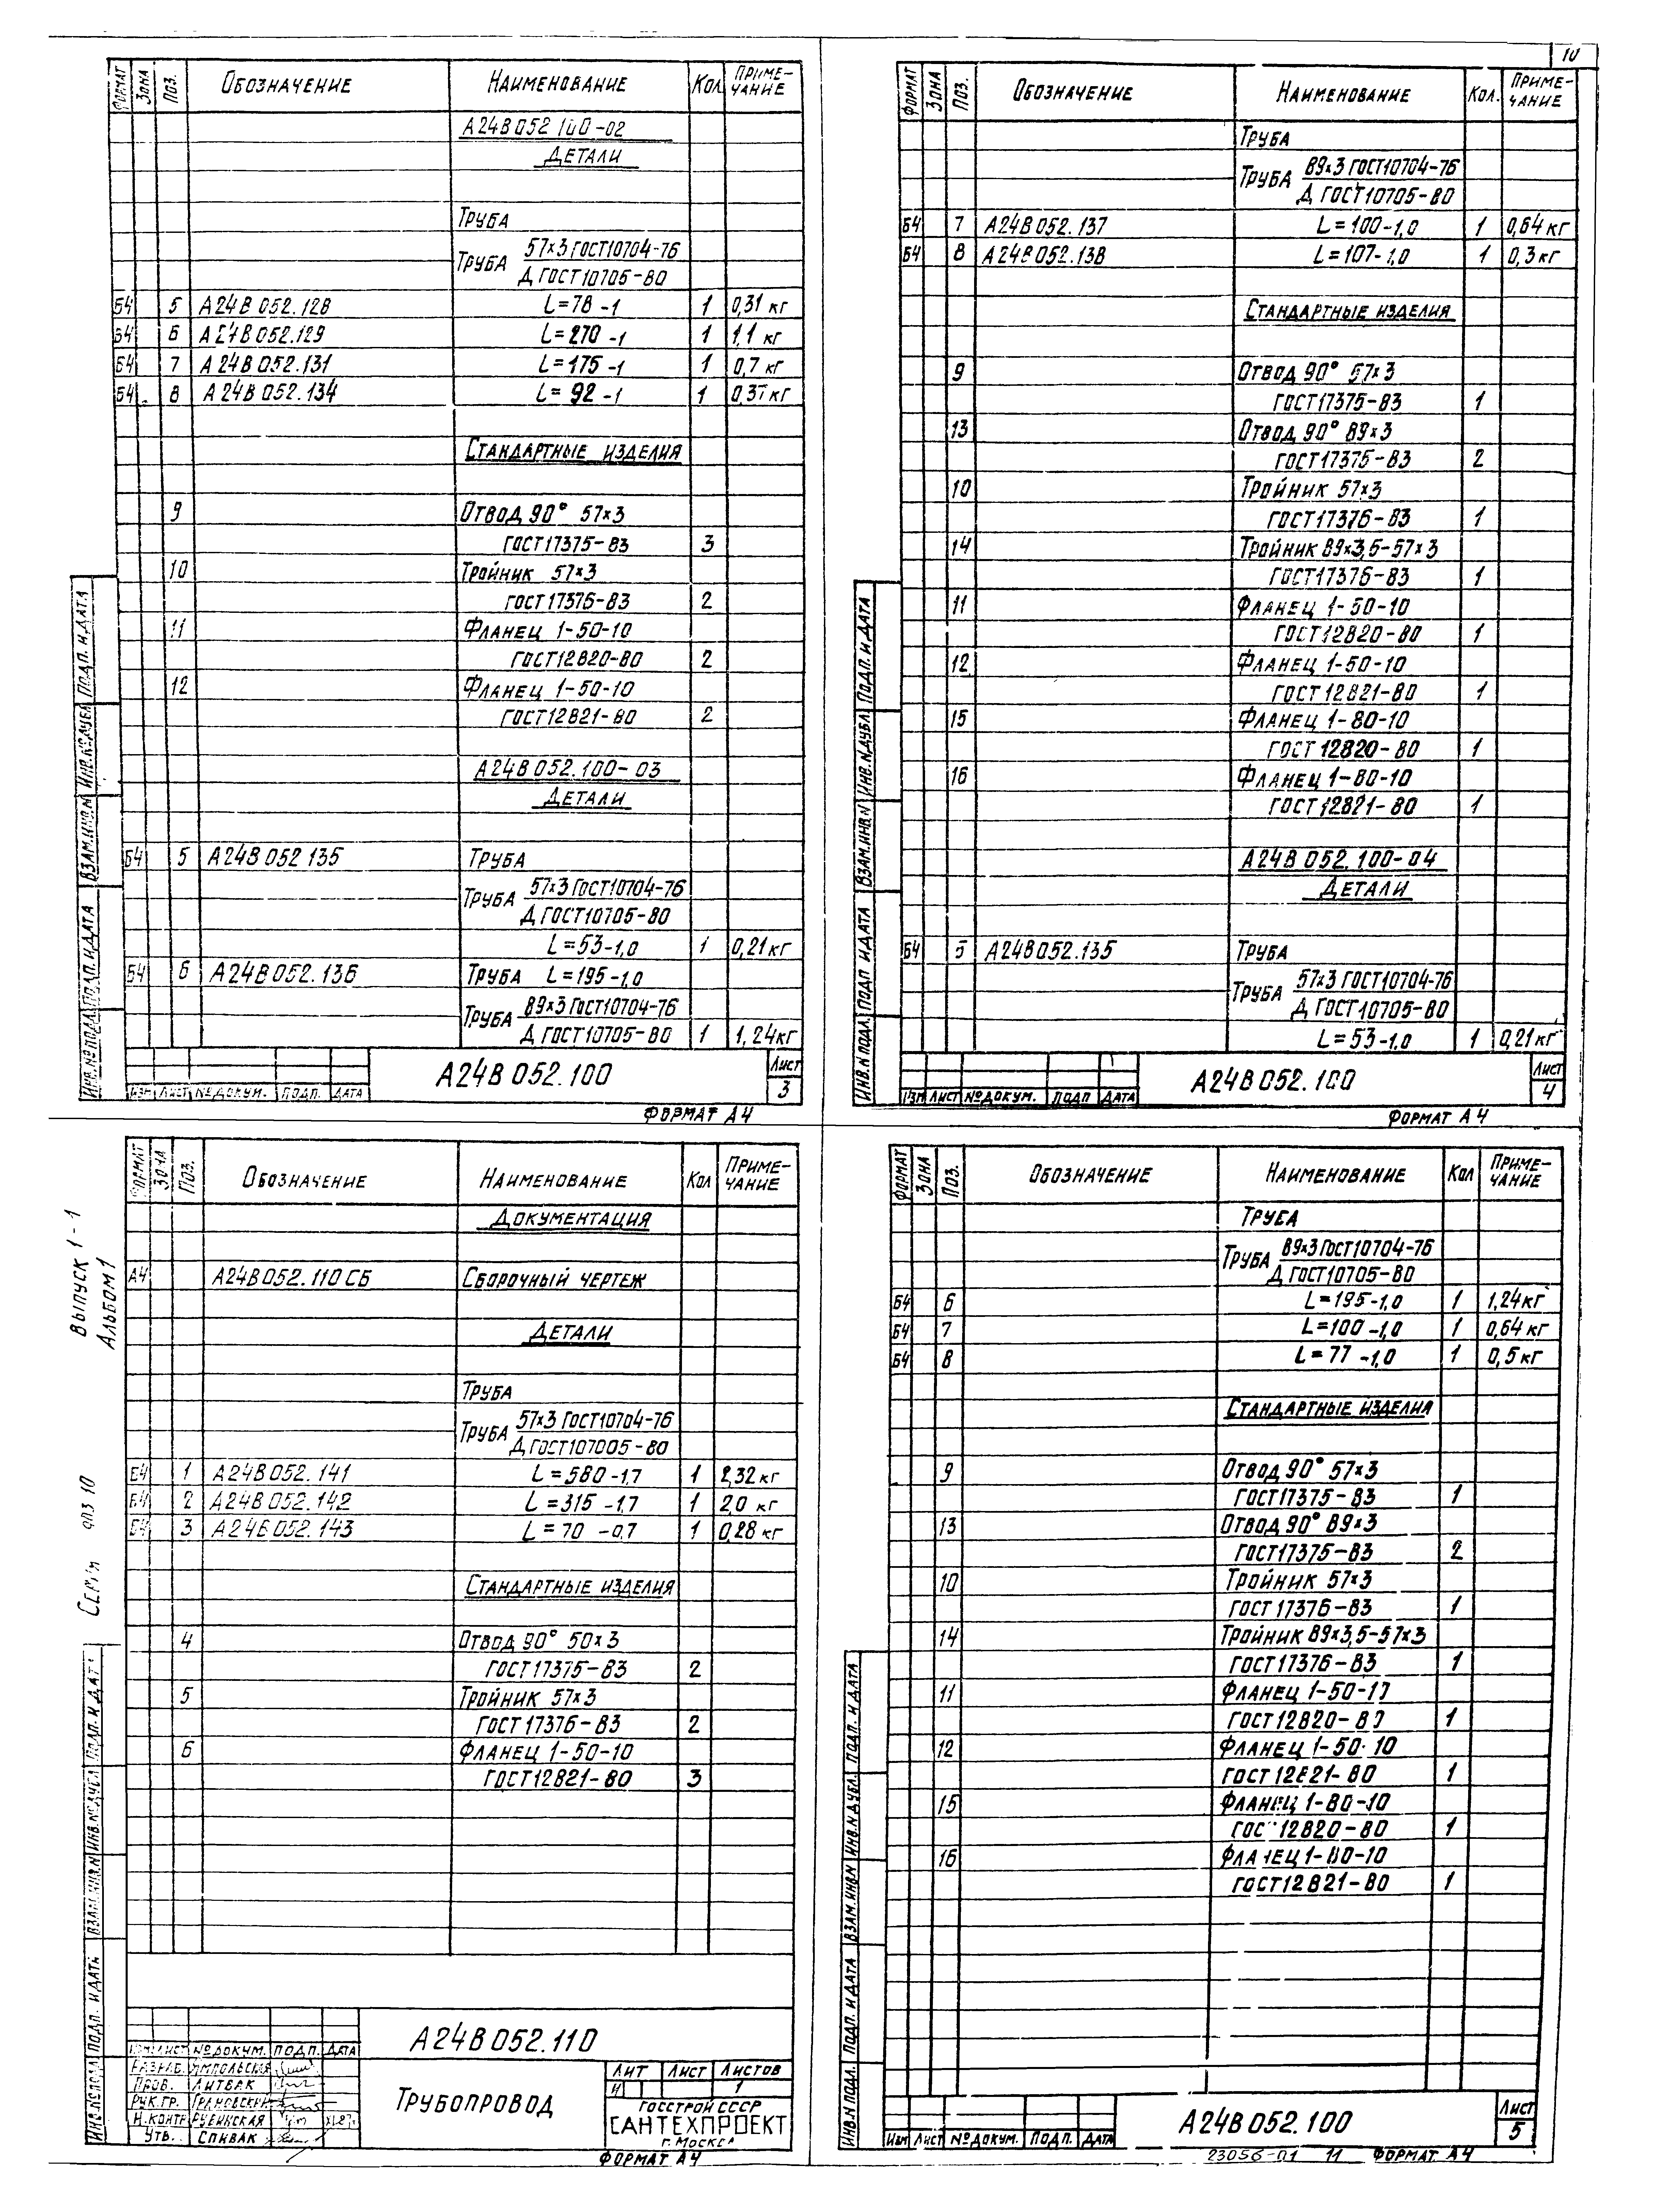 10
ФОРМАТ ЗОНА ПОЗ. ОБОЗНАЧЕНИЕ НАИМЕНОВАНИЕ КОЛ ПРИМЕ-ЧАНИЕ
А24В052 100-02
ДЕТАЛИ
ТРУБА
ТРУБА 57х3 ГОСТ10704-76
Д ГОСТ10705-80
Б4 5 А24В 052.128 L=78-1 1 0,31 кг
Б4 6 А24В052.129 L=270-1 1 1,1 кг
Б4 7 А24В052.131 L=175-1 1 0,7 кг
Б4 8 А24В 052.134 L=92-1 1 0,37 кг
СТАНДАРТНЫЕ ИЗДЕЛИЯ
9 ОТВОД 90° 57х3
ГОСТ17375-83 3
10 ТРОЙНИК 57х3
ГОСТ17376-83 2
11 ФЛАНЕЦ 1-50-10
ГОСТ12820-80 2
12 ФЛАНЕЦ 1-50-10
ГОСТ12821-80 2
А24В052.100-03
ДЕТАЛИ
Б4 5 А24В052 135 ТРУБА
ТРУБА 57х3 ГОСТ10704-76
Д ГОСТ10705-80
L=53-1,0 1 0,21кг
Б4 6 А24В052.136 ТРУБА L=195-1,0
ТРУБА 89х3 ГОСТ10704-76
Д ГОСТ10705-80 1 1,24кг
ИНВ.№ПОДЛ. ПОДП. И ДАТА ВЗАМ.ИНВ.№ ИНВ.№ДУБЛ ПОДП. И ДАТА
ИЗМ ЛИСТ №ДОКУМ. ПОДП. ДАТА
А24В052.100
ЛИСТ
3
ФОРМАТ А4
ФОРМАТ ЗОНА ПОЗ. ОБОЗНАЧЕНИЕ НАИМЕНОВАНИЕ КОЛ. ПРИМЕ-ЧАНИЕ
ТРУБА
ТРУБА 89х3 ГОСТ10704-76
Д ГОСТ10705-80
Б4 7 А24В052.137 L=100-1,0 1 0,64кг
Б4 8 А24В052.138 L=107-1,0 1 0,3кг
СТАНДАРТНЫЕ ИЗДЕЛИЯ
9 ОТВОД 90° 57х3
ГОСТ17375-83 1
13 ОТВОД 90° 89х3
ГОСТ17375-83 2
10 ТРОЙНИК 57х3
ГОСТ17376-83 1
14 ТРОЙНИК 89х3,5-57х3
ГОСТ17376-83 1
11 ФЛАНЕЦ 1-50-10
ГОСТ12820-80 1
12 ФЛАНЕЦ 1-50-10
ГОСТ12821-80 1
15 ФЛАНЕЦ 1-80-10
ГОСТ 12820-80 1
16 ФЛАНЕЦ 1-80-10
ГОСТ12821-80 1
А24В 052.100-04
ДЕТАЛИ
Б4 5 А24В052.135 ТРУБА
ТРУБА 57х3 ГОСТ10704-76
Д ГОСТ10705-80
L=53-1,0 1 0,21кг
ИНВ.№ ПОДЛ. ПОДП И ДАТА ВЗАМ.ИНВ.№ ИНВ.№ДУБЛ. ПОДП. И ДАТА
ИЗМ ЛИСТ №ДОКУМ. ПОДП ДАТА
А24В052.100
ЛИСТ
4
ФОРМАТ А4
ВЫПУСК 1-1
АЛЬБОМ1
ФОРМАТ ЗОНА ПОЗ. ОБОЗНАЧЕНИЕ НАИМЕНОВАНИЕ КОЛ ПРИМЕ-ЧАНИЕ
ДОКУМЕНТАЦИЯ
А4 А24В052.110СБ СБОРОЧНЫЙ ЧЕРТЕЖ
ДЕТАЛИ
ТРУБА
ТРУБА 57х3 ГОСТ10704-76
Д ГОСТ107005-80
Б4 1 А24В052.141 L=580-1,7 1 2,32кг
Б4 2 А24В052.142 L=315-1,7 1 2,0 кг
Б4 3 А24В052.143 L=70-0,7 1 0,28 кг
СТАНДАРТНЫЕ ИЗДЕЛИЯ
4 ОТВОД 90° 50х3
ГОСТ17375-83 2
5 ТРОЙНИК 57х3
ГОСТ17376-83 2
6 ФЛАНЕЦ 1-50-10
ГОСТ12821-80 3
ИНВ.№ПОДЛ ПОДП. И ДАТА ВЗАМ.ИНВ.№ ИНВ.№ДУБЛ ПОДП. И ДАТА
ИЗМ ЛИСТ №ДОКУМ. ПОДП. ДАТА
РАЗРАБ.
ПРОВ. ЛИТВАК
РУК.ГР. ГРАНОВСКИЙ
Н.КОНТР РУБИНСКАЯ
УТВ. СПИВАК
А24В052.110
ТРУБОПРОВОД
ЛИТ ЛИСТ ЛИСТОВ
И 1
ГОССТРОЙ СССР
САНТЕХПРОЕКТ
г. МОСКВА
ФОРМАТ А4
ФОРМАТ ЗОНА ПОЗ. ОБОЗНАЧЕНИЕ НАИМЕНОВАНИЕ КОЛ ПРИМЕ-ЧАНИЕ
ТРУБА
ТРУБА 89х3 ГОСТ10704-76
Д ГОСТ10705-80
Б4 6 L=195-1,0 1 1,24кг
Б4 7 L=100-1,0 1 0,64кг
Б4 8 L=77-1,0 1 0,5кг
СТАНДАРТНЫЕ ИЗДЕЛИЯ
9 ОТВОД 90° 57х3
ГОСТ17375-83 1
13 ОТВОД 90° 89х3
ГОСТ17375-83 2
10 ТРОЙНИК 57х3
ГОСТ 17376-83 1
14 ТРОЙНИК 89х3,5-57х3
ГОСТ17376-83 1
11 ФЛАНЕЦ 1-50-10
ГОСТ12820-80 1
12 ФЛАНЕЦ 1-50-10
ГОСТ 12821-80 1
15 ФЛАНЕЦ 1-80-10
ГОСТ 12820-80 1
16 ФЛАНЕЦ 1-80-10
ГОСТ12821-80 1
ИНВ.№ ПОДЛ. ПОДП. И ДАТА ВЗАМ.ИНВ.№ ИНВ.№ДУБЛ. ПОДП. И ДАТА
ИЗМ ЛИСТ №ДОКУМ. ПОДП. ДАТА
А24В052.100
ЛИСТ
5
23056-01 11 ФОРМАТ А4